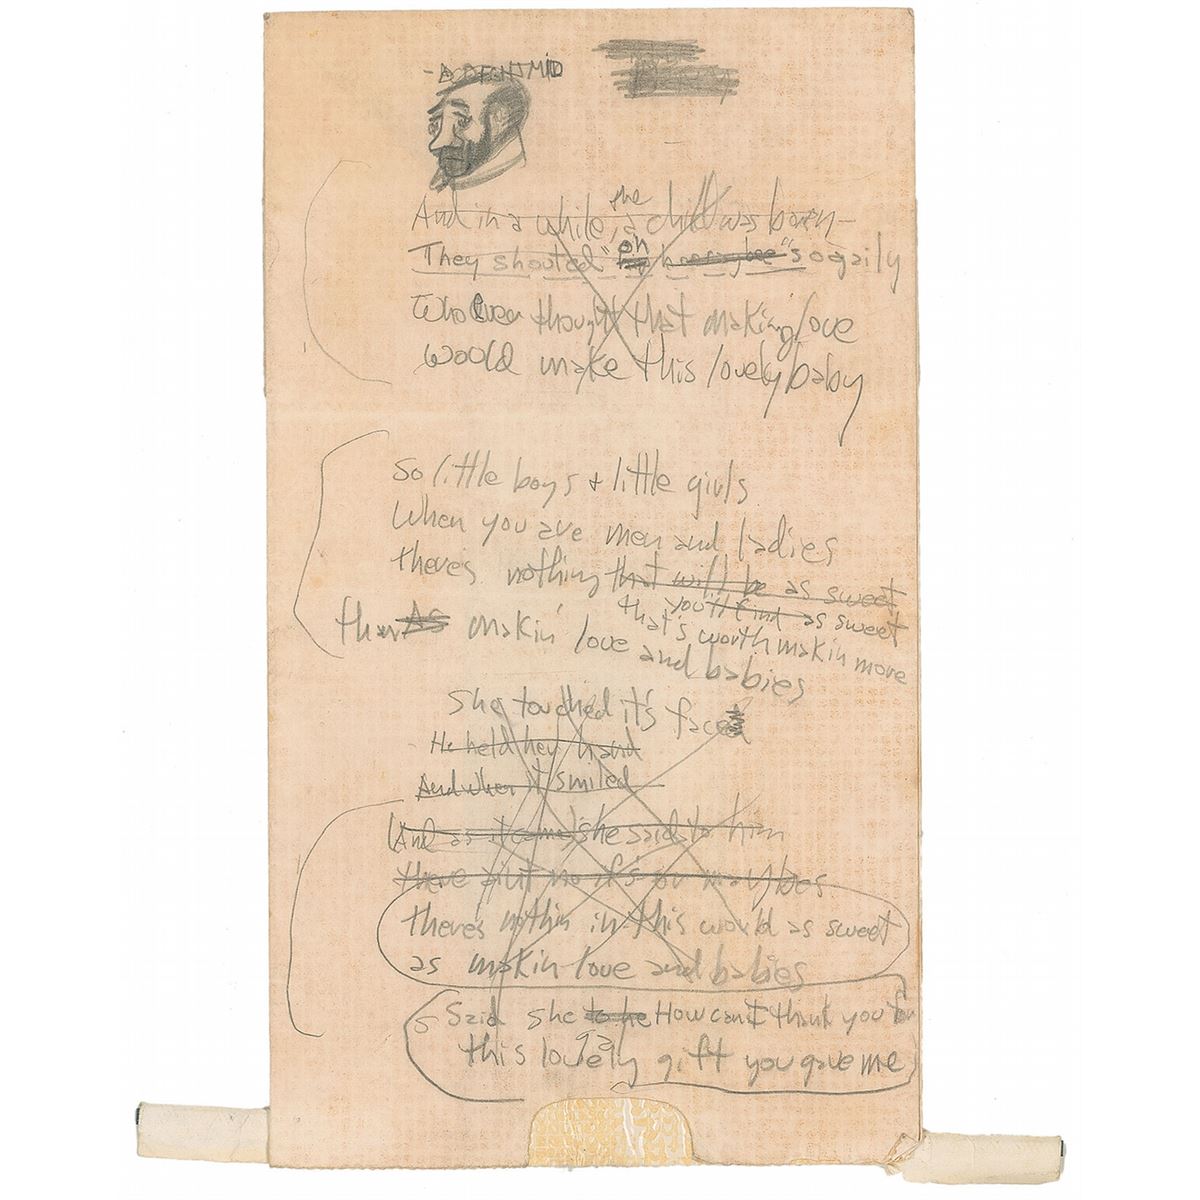 the
And in a while, a child was born—
oh
They shouted " so gaily
Who ever thought that making love
would make this lovely baby
So little boys + little girls
When you are men and ladies
there's nothing that will be as sweet
you'll find as sweet
that's worth makin more
than As makin' love and babies
She touched it's face
He held her hand
And when it smiled
And as it came she said to him
there no it's or maybes
there's nothin in this world as sweet
as makin love and babies
5 Said she to he How can I thank you for
this lovely gift you gave me